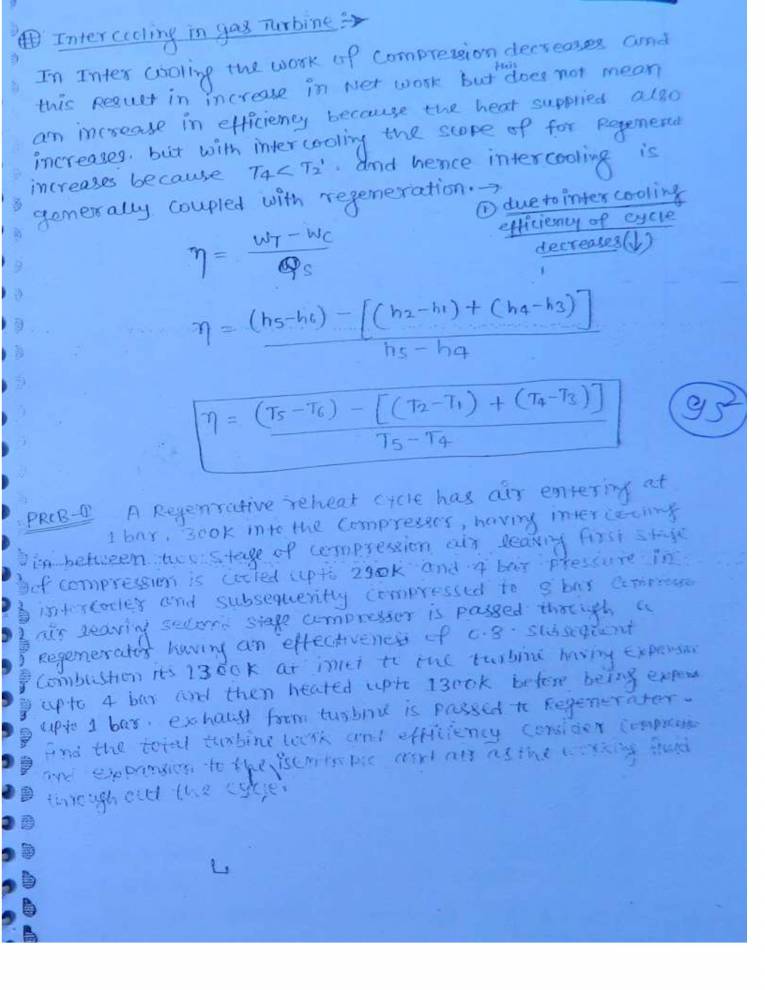 Intercooling in gas Turbine :->
In Inter cooling the work of compression decreases and
this Result in increase in Net work but this does not mean
an increase in efficiency because the heat supplied also
increases. but with intercooling the scope of for Regenerat
increases because T4 < T2'. and hence intercooling is
generally coupled with regeneration. →
① due to inter cooling
efficiency of cycle
decreases(↓)
η = WT - WC / QS
η = (h5-h6) - [(h2-h1) + (h4-h3)] / h5-h4
η = (T5-T6) - [(T2-T1) + (T4-T3)] / T5-T4
952
PROB-① A Regenrative reheat cycle has air entering at
1 bar, 300K into the compressor, having intercooling
in between two stage of compression air leaving first stage
of compression is cooled upto 290K and 4 bar pressure in
intercooler and subsequently compressed to 8 bar compresse
air leaving second stage compressor is passed through a
Regenerator having an effectiveness of 0.8. subseqient
combustion its 1300K at inlet to the turbine having expansion
upto 4 bar and then heated upto 1300K before being expen
upto 1 bar. exhaust from turbine is passed to Regenerator.
find the total turbine work and efficiency consider compress
and expansion to the isentropic and air as the working fluid
through out the cycle.